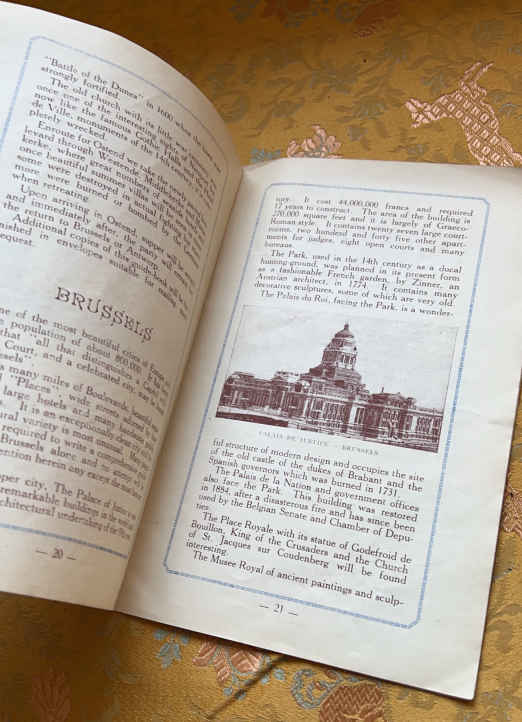 "Battle of the Dunes" in 1600 when the
strongly fortified.
The old church with its little was
once one of the interesting sights, but
now like the famous Cloth Halls and Hotel
de Ville, monuments of the 14th century,
pletely wrecked.
Enroute for Ostend we take the newly
levard through Westende, Middelkerke,
kerke, where great numbers of
once beautiful summer villas
some were destroyed in
more were burned or bombed by the
when retreating.
Upon arriving in Ostend, supper will be
and immediately after the train will
the return to Brussels or Antwerp.
Additional copies of this guide book will be
nished in envelopes suitable for mailing
equest.
BRUSSELS
ne of the most beautiful cities of Europe
population of about 800,000.
that "all that distinguishes a
Court, and a celebrated city, may be
ssels".
many miles of Boulevards,
"Places", wide streets adorned
large hotels and many handsome
It is an exceptionally clean city and
tural variety is most unusual.
required to write a
Brussels alone and no attempt will
ention herein any except the most
pper city, The Palace of Justice is
remarkable buildings in the world and
rchitectural undertaking of the 19th
— 20 —
tury. It cost 44,000,000 francs and required
17 years to construct. The area of the building is
270,000 square feet and it is largely of Graeco-
Roman style. It contains twenty seven large court-
rooms, two hundred and forty five other apart-
ments for judges, eight open courts and many
bureaus.
The Park, used in the 14th century as a ducal
hunting-ground, was planned in its present form
as a fashionable French garden, by Zinner, an
Austrian architect, in 1774. It contains many
decorative sculptures, some of which are very old.
The Palais du Roi, facing the Park, is a wonder-
PALAIS DE JUSTICE — BRUSSELS
ful structure of modern design and occupies the site
of the old castle of the dukes of Brabant and the
Spanish governors which was burned in 1731.
The Palais de la Nation and government offices
also face the Park. This building was restored
in 1884, after a disasterous fire and has since been
used by the Belgian Senate and Chamber of Depu-
ties.
The Place Royale with its statue of Godefroid de
Bouillon, King of the Crusaders and the Church
of St. Jacques sur Coudenberg will be found
interesting.
The Musee Royal of ancient paintings and sculp-
— 21 —